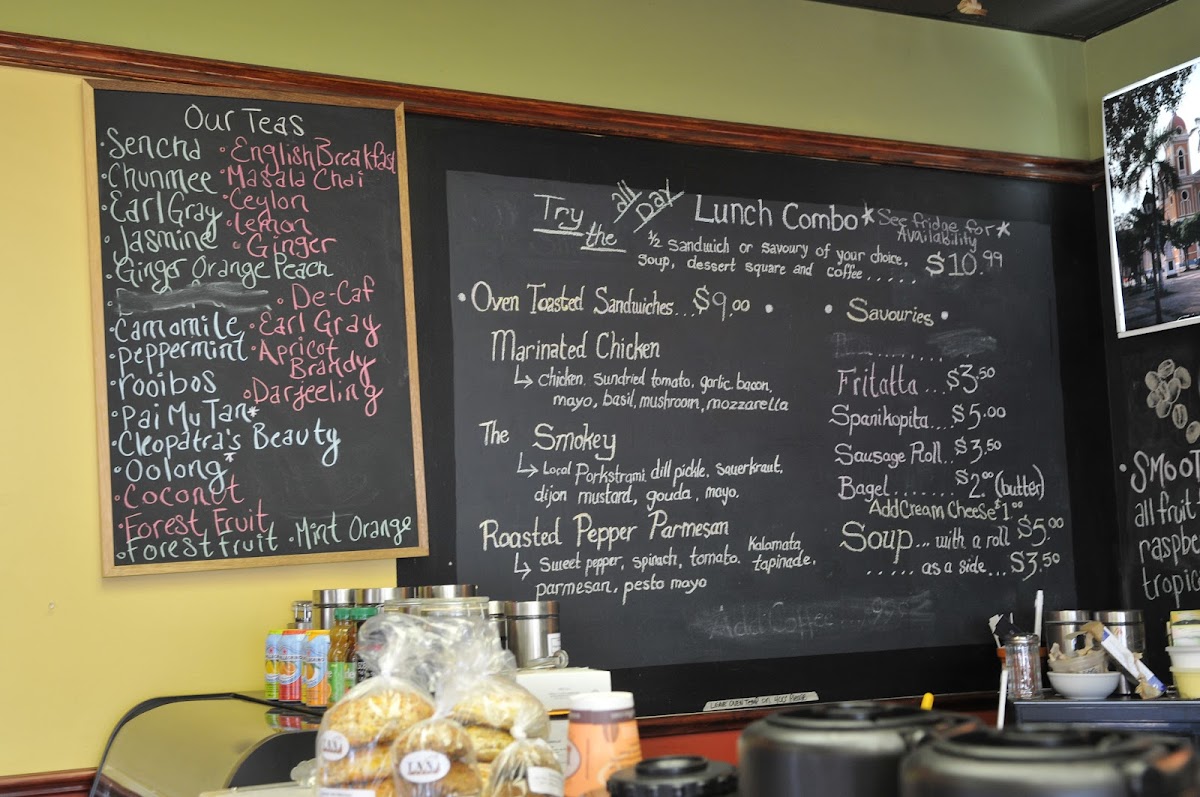 Our Teas
• Sencha
• Chunmee
• Earl Gray
• Jasmine
• Ginger Orange Peach
• Camomile
• peppermint
• rooibos
• Pai Mu Tan*
• Cleopatra's Beauty
• Oolong*
• Coconut
• Forest Fruit
• Forest fruit • Mint Orange
• English Breakfast
• Masala Chai
• Ceylon
• lemon
• Ginger
• De-Caf
• Earl Gray
• Apricot
Brandy
• Darjeeling
Try the all Day Lunch Combo * See fridge for *
Availability
½ sandwich or savoury of your choice,
soup, dessert square and coffee...... $10.99
• Oven Toasted Sandwiches...$9.00 •
Marinated Chicken
↳ chicken, sundried tomato, garlic, bacon,
mayo, basil, mushroom, mozzarella
The Smokey
↳ Local Porkstrami, dill pickle, sauerkraut,
dijon mustard, gouda, mayo.
Roasted Pepper Parmesan
↳ sweet pepper, spinach, tomato, Kalamata tapinade,
parmesan, pesto mayo
Add Coffee....99¢
• Savouries •
Fritatta...$3.50
Spanikopita....$5.00
Sausage Roll..$3.50
Bagel........$2.00 (butter)
Add Cream Cheese $1.00
Soup...with a roll $5.00
......as a side...$3.50
• SMOOT
all fruit
raspbe
tropic
LEAVE OVEN TEMP ON 400 PLEASE